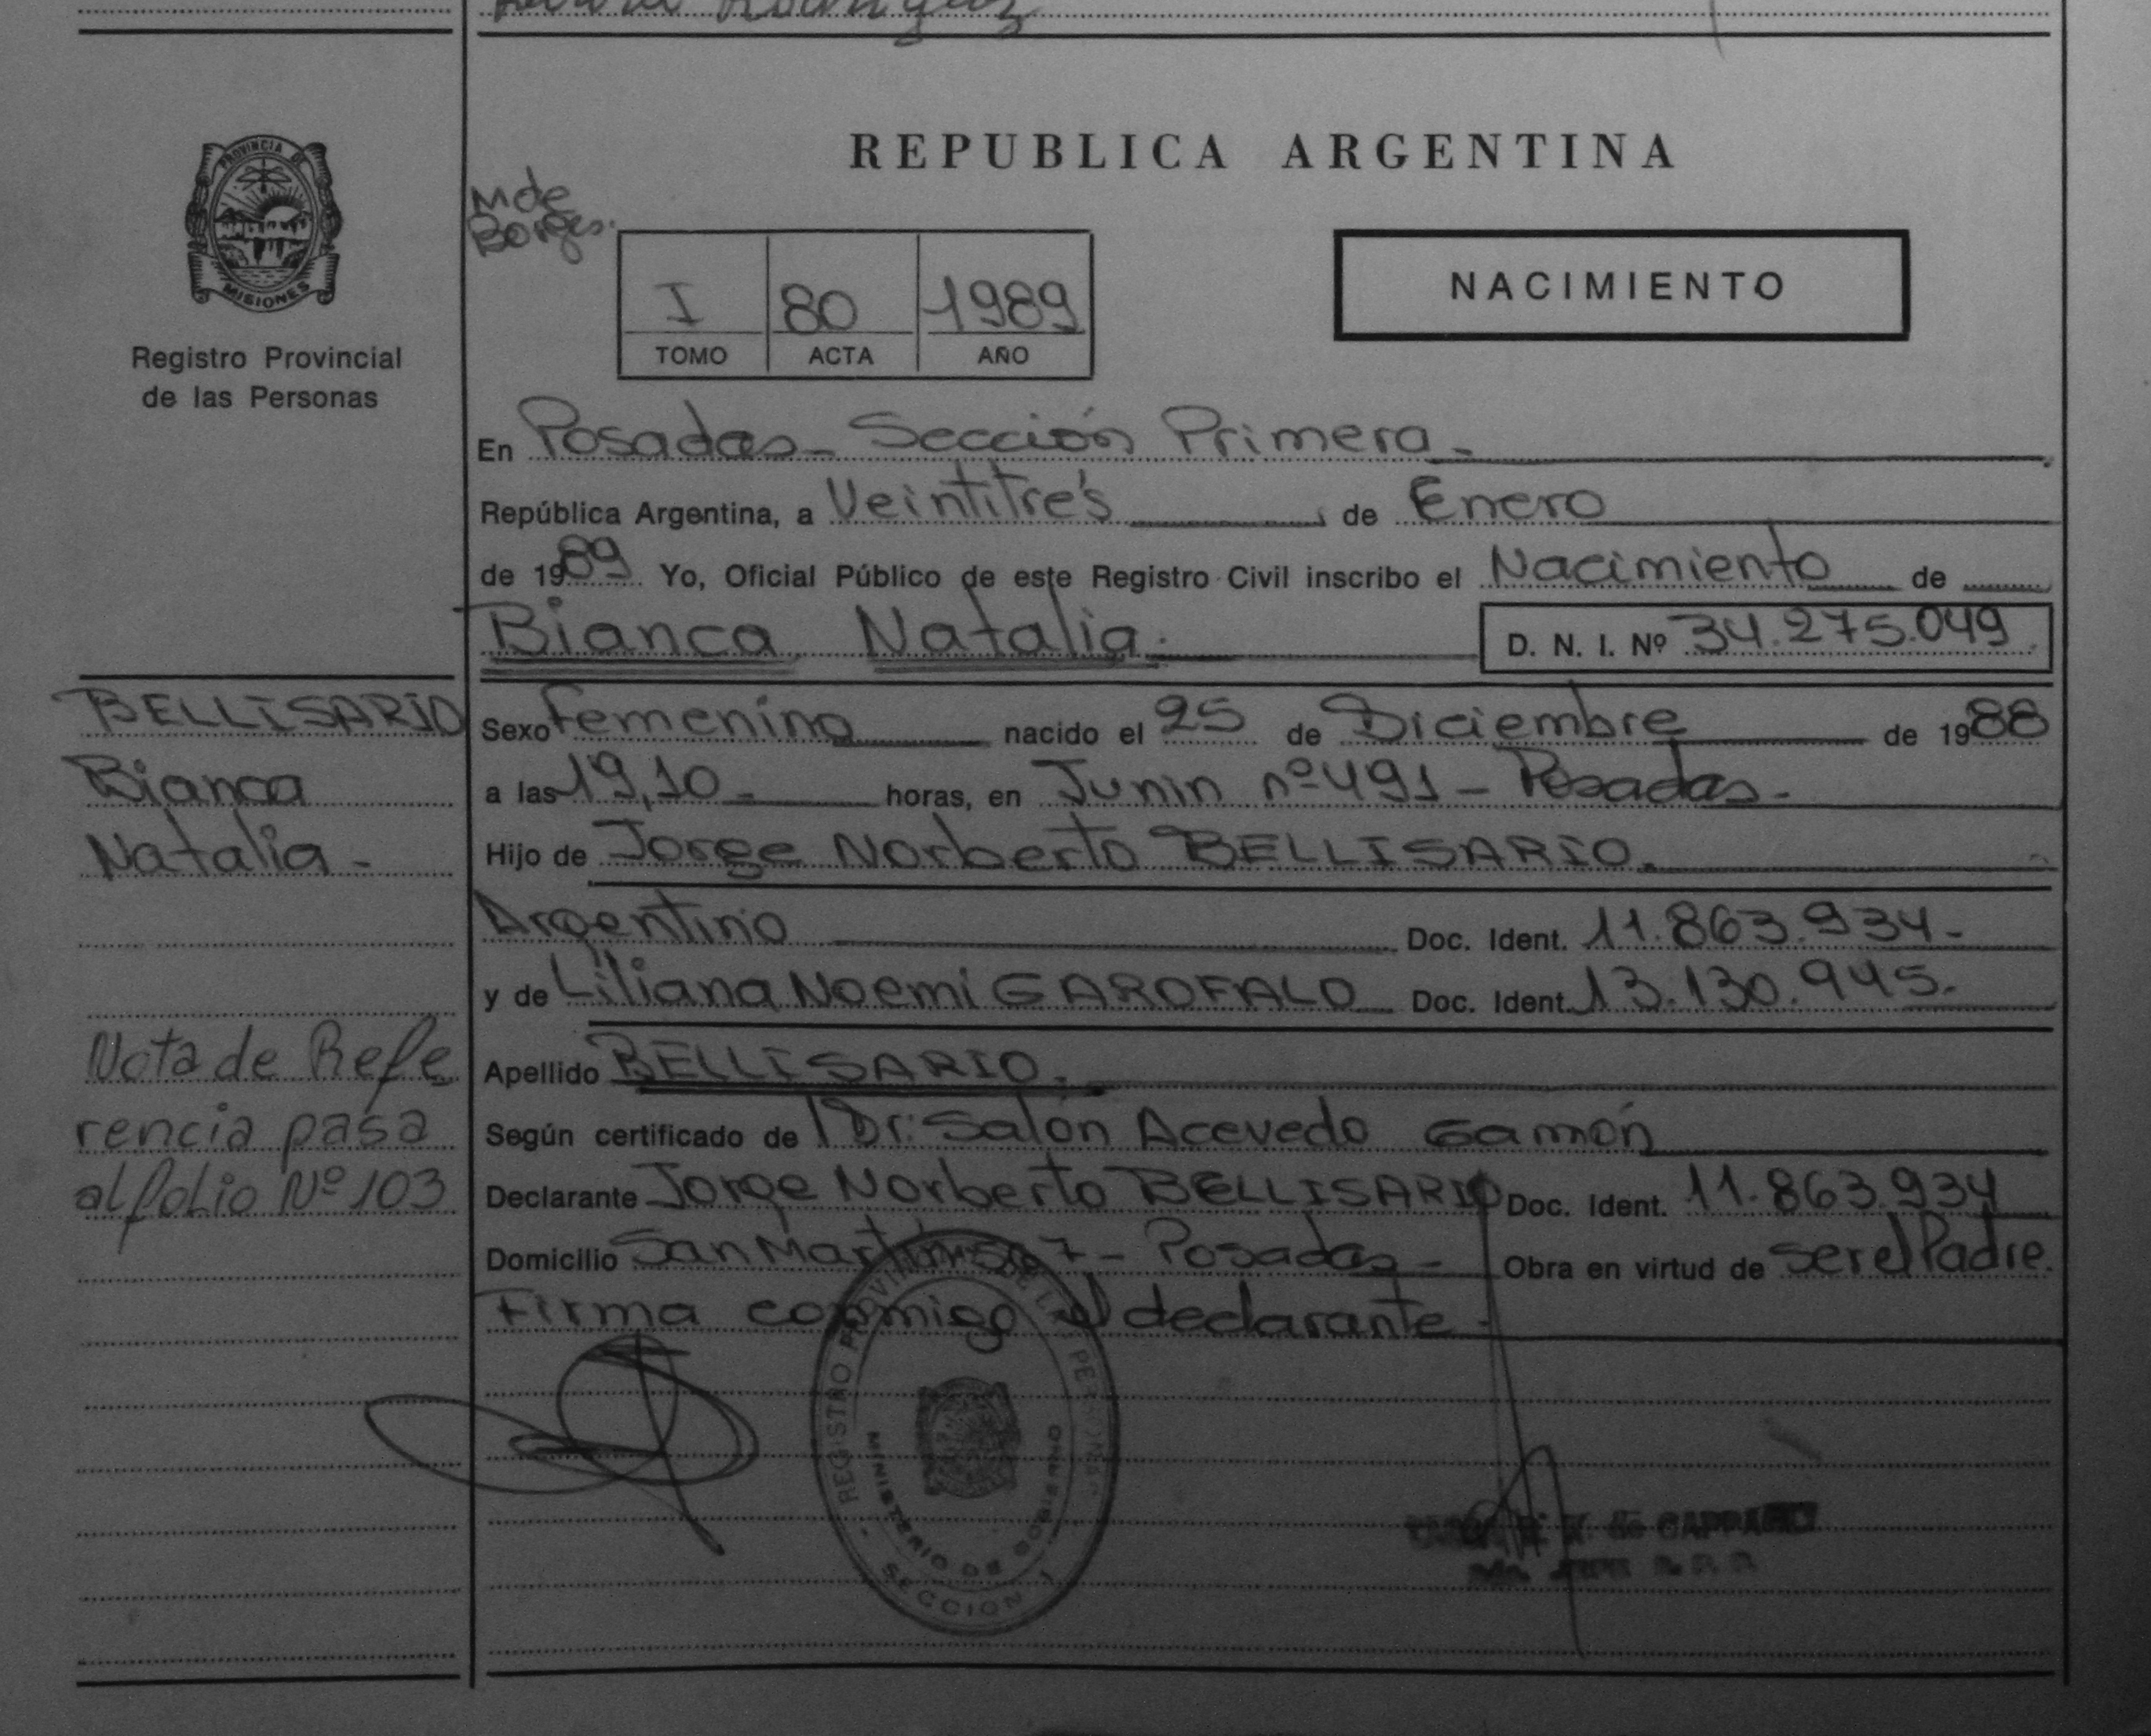 Rodriguez
PROVINCIA DE
MISIONES
Registro Provincial
de las Personas
REPUBLICA ARGENTINA
M de
Borges.
I 80 1989
TOMO ACTA AÑO
NACIMIENTO
En Posadas - Sección Primera -
República Argentina, a Veintitrés de Enero
de 1989 Yo, Oficial Público de este Registro Civil inscribo el Nacimiento de
Bianca Natalia. D. N. I. Nº 34.275.049
BELLISARIO
Bianca
Natalia -
Sexo femenino nacido el 25 de Diciembre de 1988
a las 19,10 - horas, en Junin nº 491 - Posadas -
Hijo de Jorge Norberto BELLISARIO.
Argentino Doc. Ident. 11.863.934 -
y de Liliana Noemi GAROFALO Doc. Ident. 13.130.945.
Nota de Refe
rencia pasa
al folio Nº 103
Apellido BELLISARIO.
Según certificado de Dr. Salón Acevedo Gamón
Declarante Jorge Norberto BELLISARIO Doc. Ident. 11.863.934
Domicilio San Martín - Posadas - Obra en virtud de ser el Padre.
Firma conmigo el declarante -
REGISTRO PROVINCIAL DE LAS PERSONAS
MINISTERIO DE GOBIERNO
SECCION 1